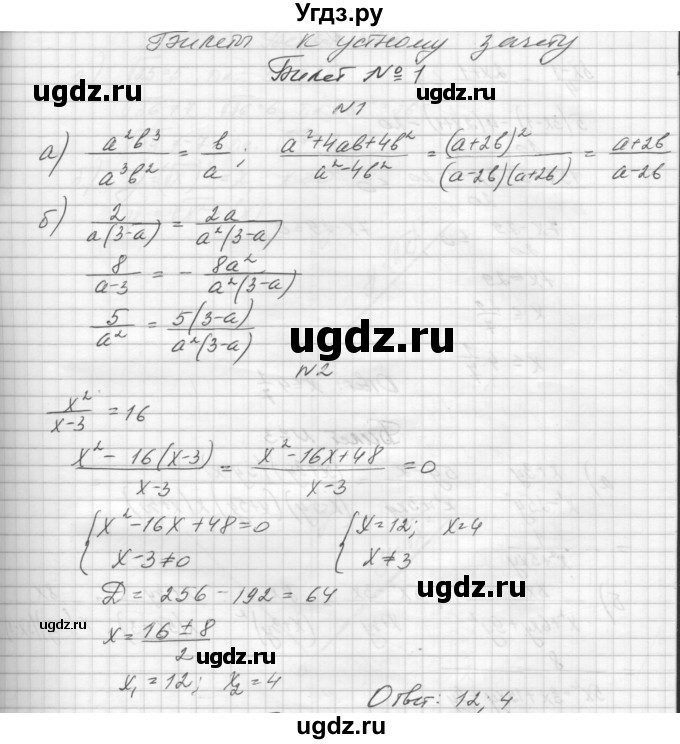 Угдз.ру
Билеты к устному зачету
Билет № 1
ugdz.ru ugdz.ru
N1
а) a²b³/a³b² = b/a; (a²+4ab+4b²)/(a²-4b²) = (a+2b)²/((a-2b)(a+2b)) = (a+2b)/(a-2b)
б) 2/(a(3-a)) = 2a/(a²(3-a))
8/(a-3) = - 8a²/(a²(3-a))
ugdz.ru
5/a² = 5(3-a)/(a²(3-a))
ugdz.ru
N2
x²/(x-3) = 16
ugdz.ru
(x² - 16(x-3))/(x-3) = (x²-16x+48)/(x-3) = 0
{x²-16x+48=0 {x=12; x=4
x-3≠0 x≠3
ugdz.ru
Д = 256 - 192 = 64
ugdz.ru
x = (16 ± 8)/2
ugdz.ru
x₁ = 12; x₂ = 4
Ответ: 12; 4
ugdz.ru